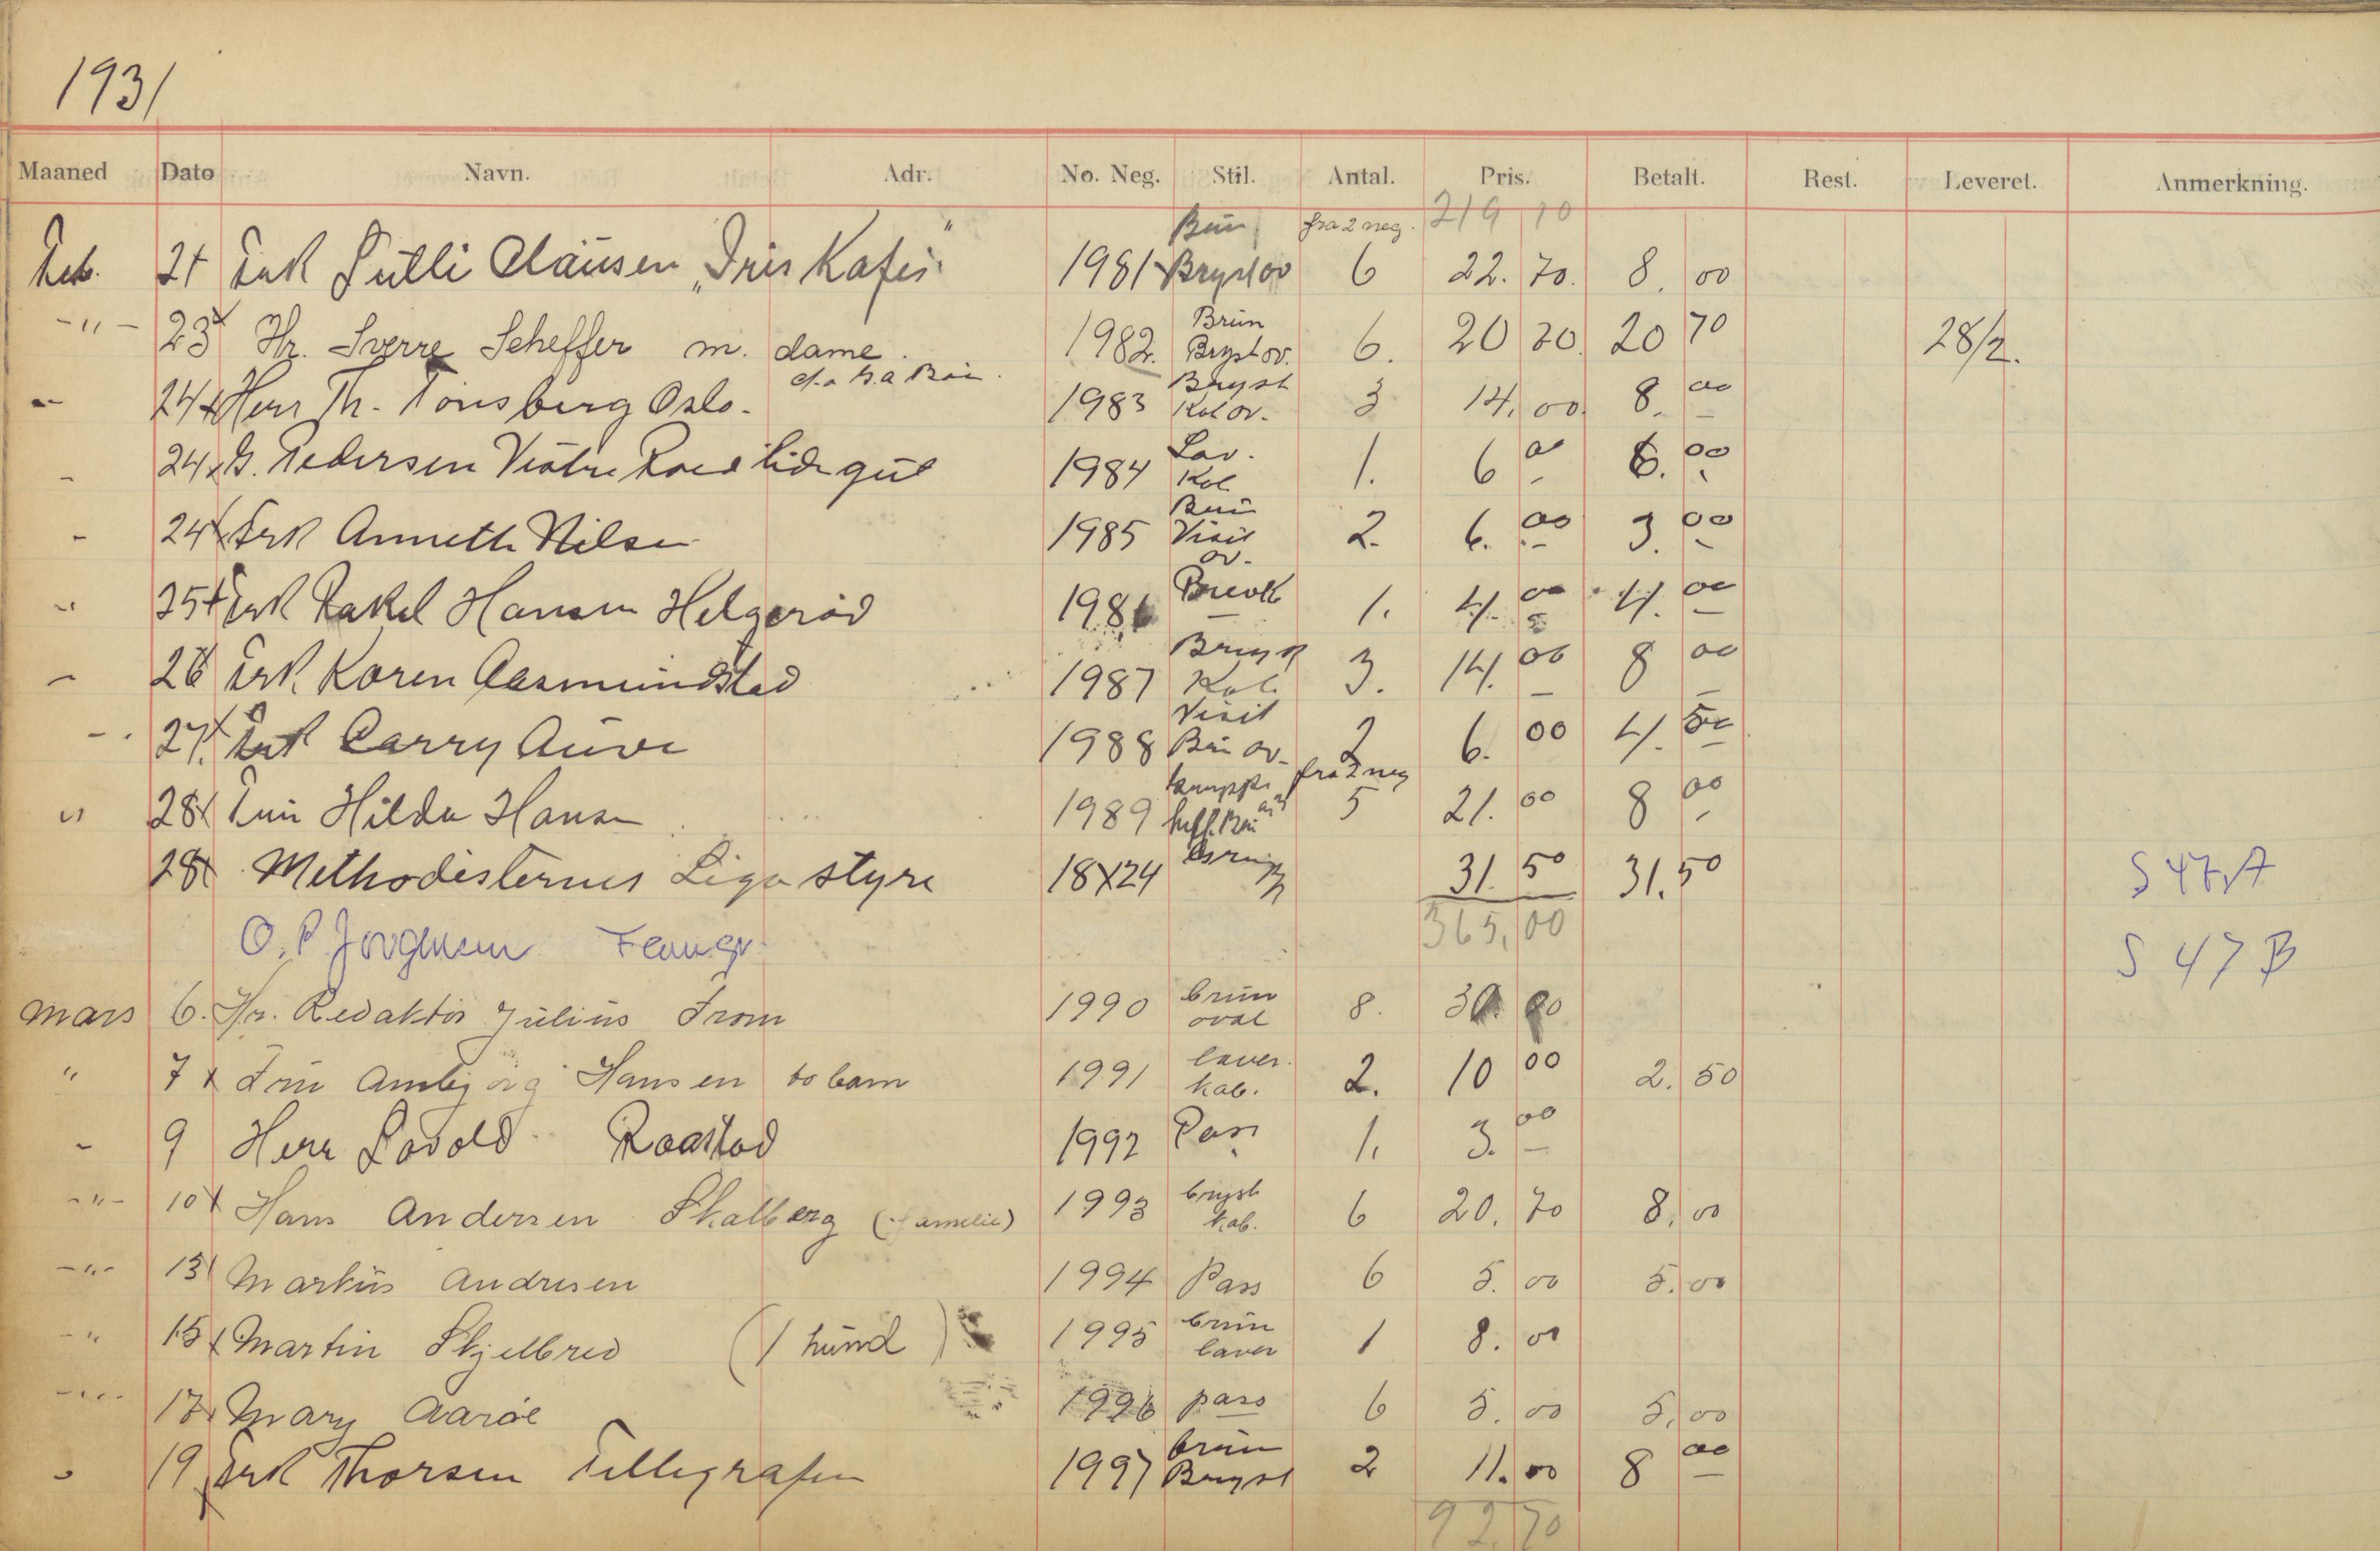 1931
Maaned Dato Navn. Adr. No. Neg. Stil. Antal. Pris. Betalt. Rest. Leveret. Anmerkning.
219 10
fra 2 neg.
Feb. 21 Frk Lülli Claüsen „Iris Kafe" 1981 Bryst ov 6 22. 70. 8. 00
Brün
-"- 23 Hr. Sverre Scheffer m. dame. 1982. Bryst ov. 6. 20 70 20 70 28/2.
Bryst
24 Herr Th. Tönsberg Oslo. 1983 Kol ov. 3 14. 00. 8. 00
Lav.
24 G. Pedersen 1984 Kol 1. 6 00 6. 00
24 Frk Anneth Nilsen 1985 Visit ov. 2. 6. 00 3. 00
25 Frk Rakel Hansen Helgerød 1986 Brevk 1. 4. 00 4. 00
Bryst
26 Frk. Karen Aasmundstad 1987 Kab 3. 14. 00 8 00
Visit
27. Frk Carry Aüve 1988 Brü ov. 2 6. 00 4. 50
fra 2 neg
" 28 Früi Hilda Hansen 1989 5 21. 00 8 00
28 Methodisternes Liga styre 18X24 31. 50 31. 50 S 47 A
O. P. Jörgensen 365,00 S 47 B
Mars 6. Hr. Redaktör Jülius From 1990 brün oval 8.
" 7 x Frü Ambjörg Hansen to barn 1991 laver. kab. 2. 10 00 2. 50
9 Herr Lövold Raastad 1992 Pass 1. 3. 00
-"- 10 x Hans Andersen Skalberg (familie) 1993 bryst kab. 6 20. 70 8. 00
-"- 13 Markus Andresen 1994 Pass 6 5. 00 5. 00
-" 15 x Martin Skjelbred (1 hünd) 1995 brün laver 1 8. 00
17 x Mary Aaröe 1996 pass 6 5. 00 5. 00
19 Frk Thorsen Tellegrafen 1997 brün Bryst 2 11. 00 8 00
92,70